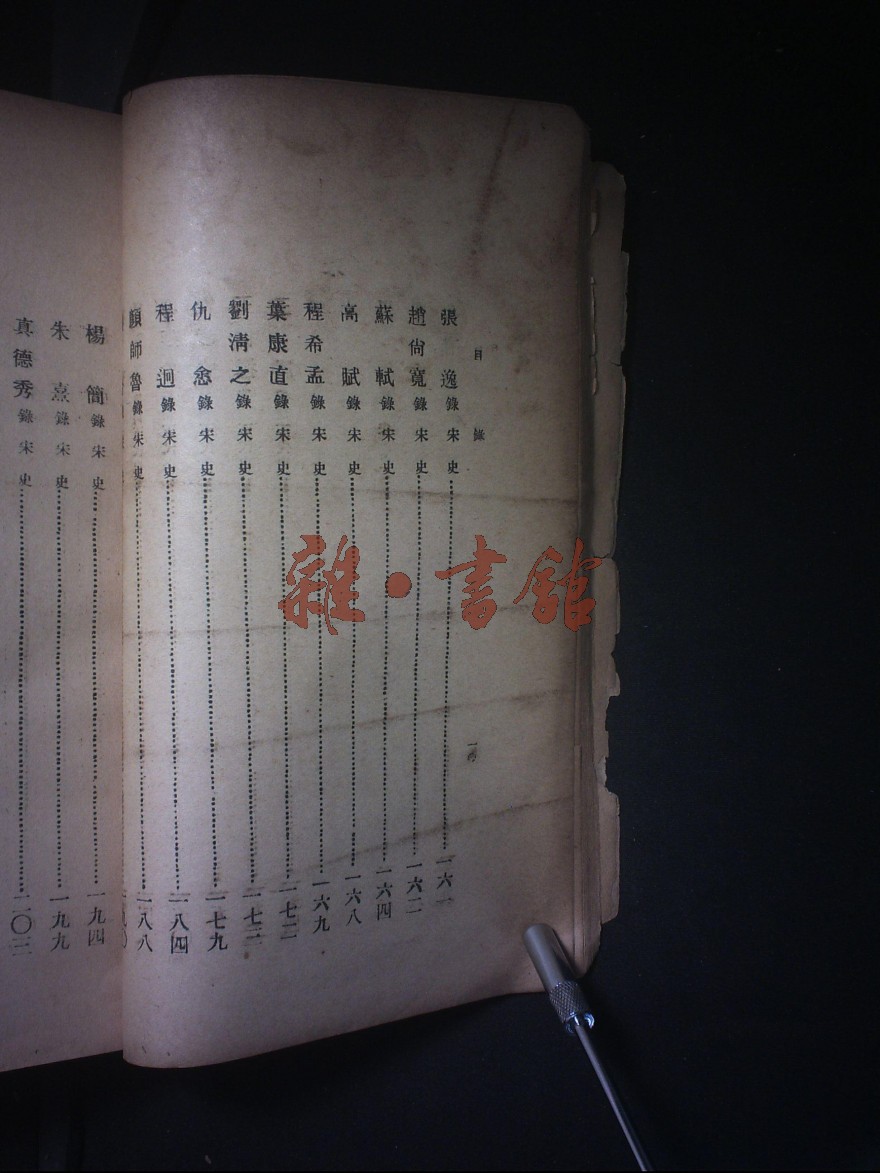 目錄
張逸錄宋史………一六一
趙尙寬錄宋史………一六二
蘇軾錄宋史………一六四
高賦錄宋史………一六八
程希孟錄宋史………一六九
葉康直錄宋史………一七二
劉淸之錄宋史………一七三
仇悆錄宋史………一七九
程迥錄宋史………一八四
顏師魯錄宋史………一八八
楊簡錄宋史………一九四
朱熹錄宋史………一九九
真德秀錄宋史………二〇三
雜·書館